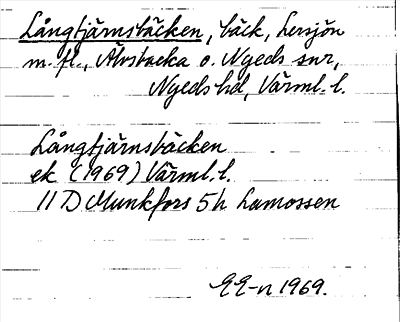 Långtjärnsbäcken, bäck, Lersjön
m. fl., Älvsbacka o. Nyeds snr,
Nyeds hd, Värml. l.
Långtjärnsbäcken
ek. (1969) Värml. l.
11 D Munkfors 5h Lamossen
EE-n 1969.